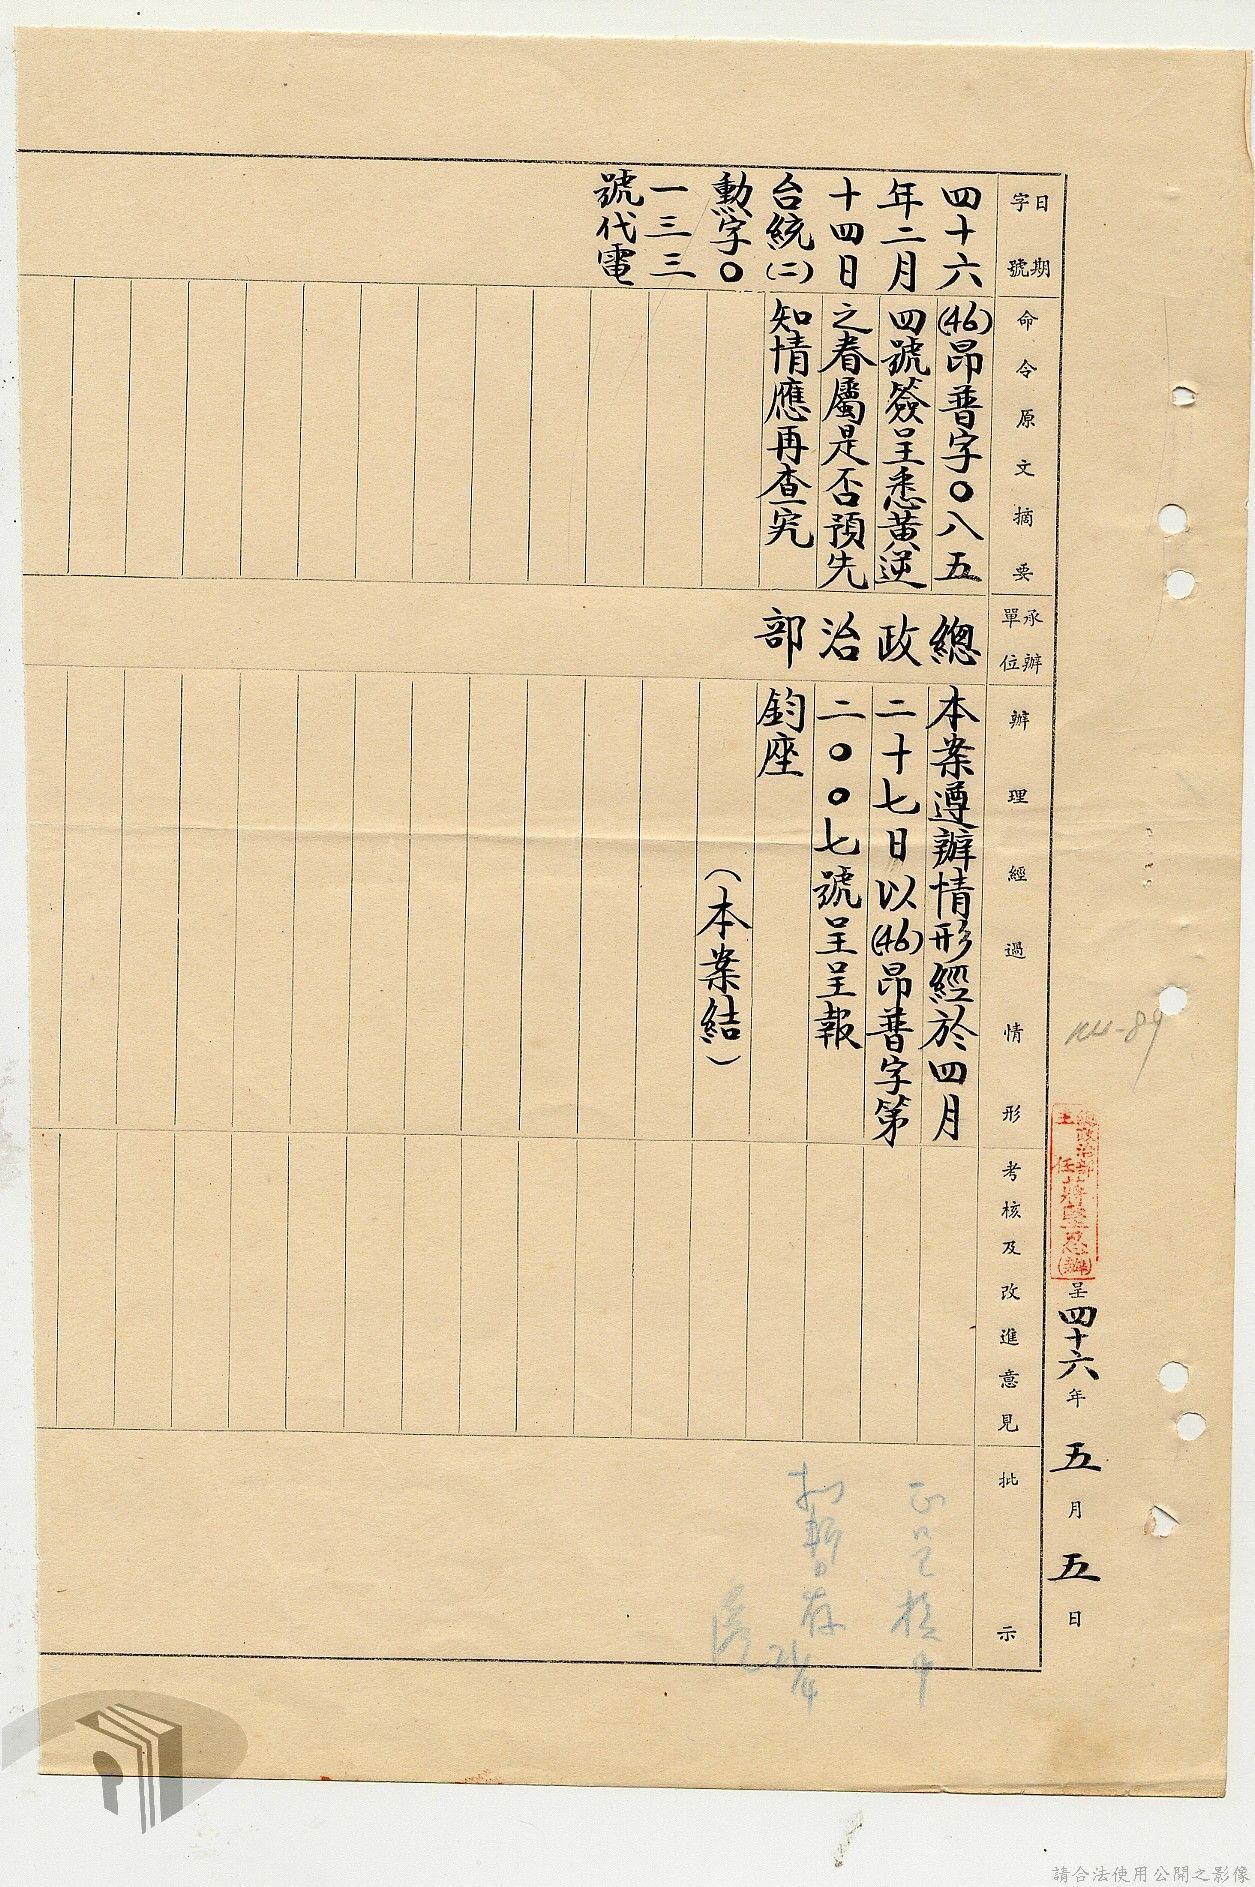 總政治部
主任蔣堅忍(辦)
呈四十六年五月五日
日期
字號
命令原文摘要
承辦
單位
辦理經過情形
考核及改進意見
批示
四十六
年二月
十四日
台統(二)
勳字〇
一三三
號代電
(46)昂普字〇八五
四號簽呈悉黃逆
之眷屬是否預先
知情應再查究
總政治部
本案遵辦情形經於四月
二十七日以(46)昂普字第
二〇〇七號呈呈報
鈞座
(本案結)
正呈核中
暫存
請合法使用公開之影像